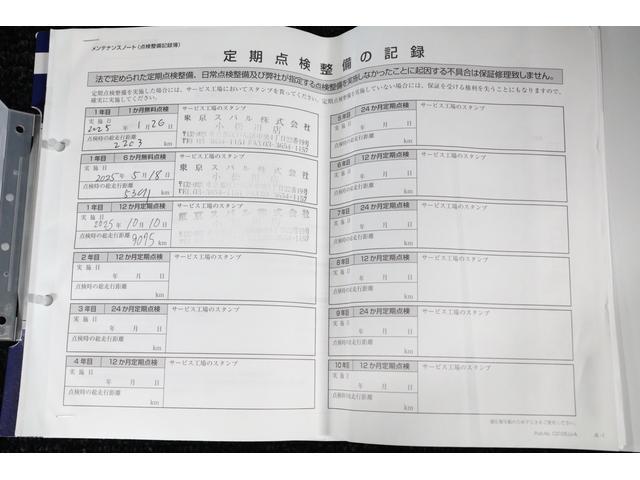 メンテナンスノート(点検整備記録簿)
定期点検整備の記録
法で定められた定期点検整備、日常点検整備及び弊社が指定する点検整備を実施しなかったことに起因する不具合は保証修理致しません。
定期点検整備を実施した場合には、サービス工場においてスタンプを貰ってください。定期点検整備を実施していない場合には、保証を受ける権利を失うことにもなりますので、
確実に実施してください。
1年目 1か月無料点検 サービス工場のスタンプ
実施日
2025年 1月26日
東京スバル株式会社
小松川店
点検時の総走行距離
2203 km
1年目 6か月無料点検 サービス工場のスタンプ
実施日
2025年 5月18日
点検時の総走行距離
5391 km
1年目 12か月定期点検 サービス工場のスタンプ
実施日
2025年 10月10日
東京スバル株式会社
点検時の総走行距離
9095 km
2年目 12か月定期点検 サービス工場のスタンプ
実施日
年 月 日
点検時の総走行距離
km
3年目 24か月定期点検 サービス工場のスタンプ
実施日
年 月 日
点検時の総走行距離
km
4年目 12か月定期点検 サービス工場のスタンプ
実施日
年 月 日
点検時の総走行距離
km
5年目 24か月定期点検 サービス工場のスタンプ
実施日
年 月 日
点検時の総走行距離
km
6年目 12か月定期点検 サービス工場のスタンプ
実施日
年 月 日
点検時の総走行距離
km
7年目 24か月定期点検 サービス工場のスタンプ
実施日
年 月 日
点検時の総走行距離
km
8年目 12か月定期点検 サービス工場のスタンプ
実施日
年 月 日
点検時の総走行距離
km
9年目 24か月定期点検 サービス工場のスタンプ
実施日
年 月 日
点検時の総走行距離
km
10年目 12か月定期点検 サービス工場のスタンプ
実施日
年 月 日
点検時の総走行距離
km